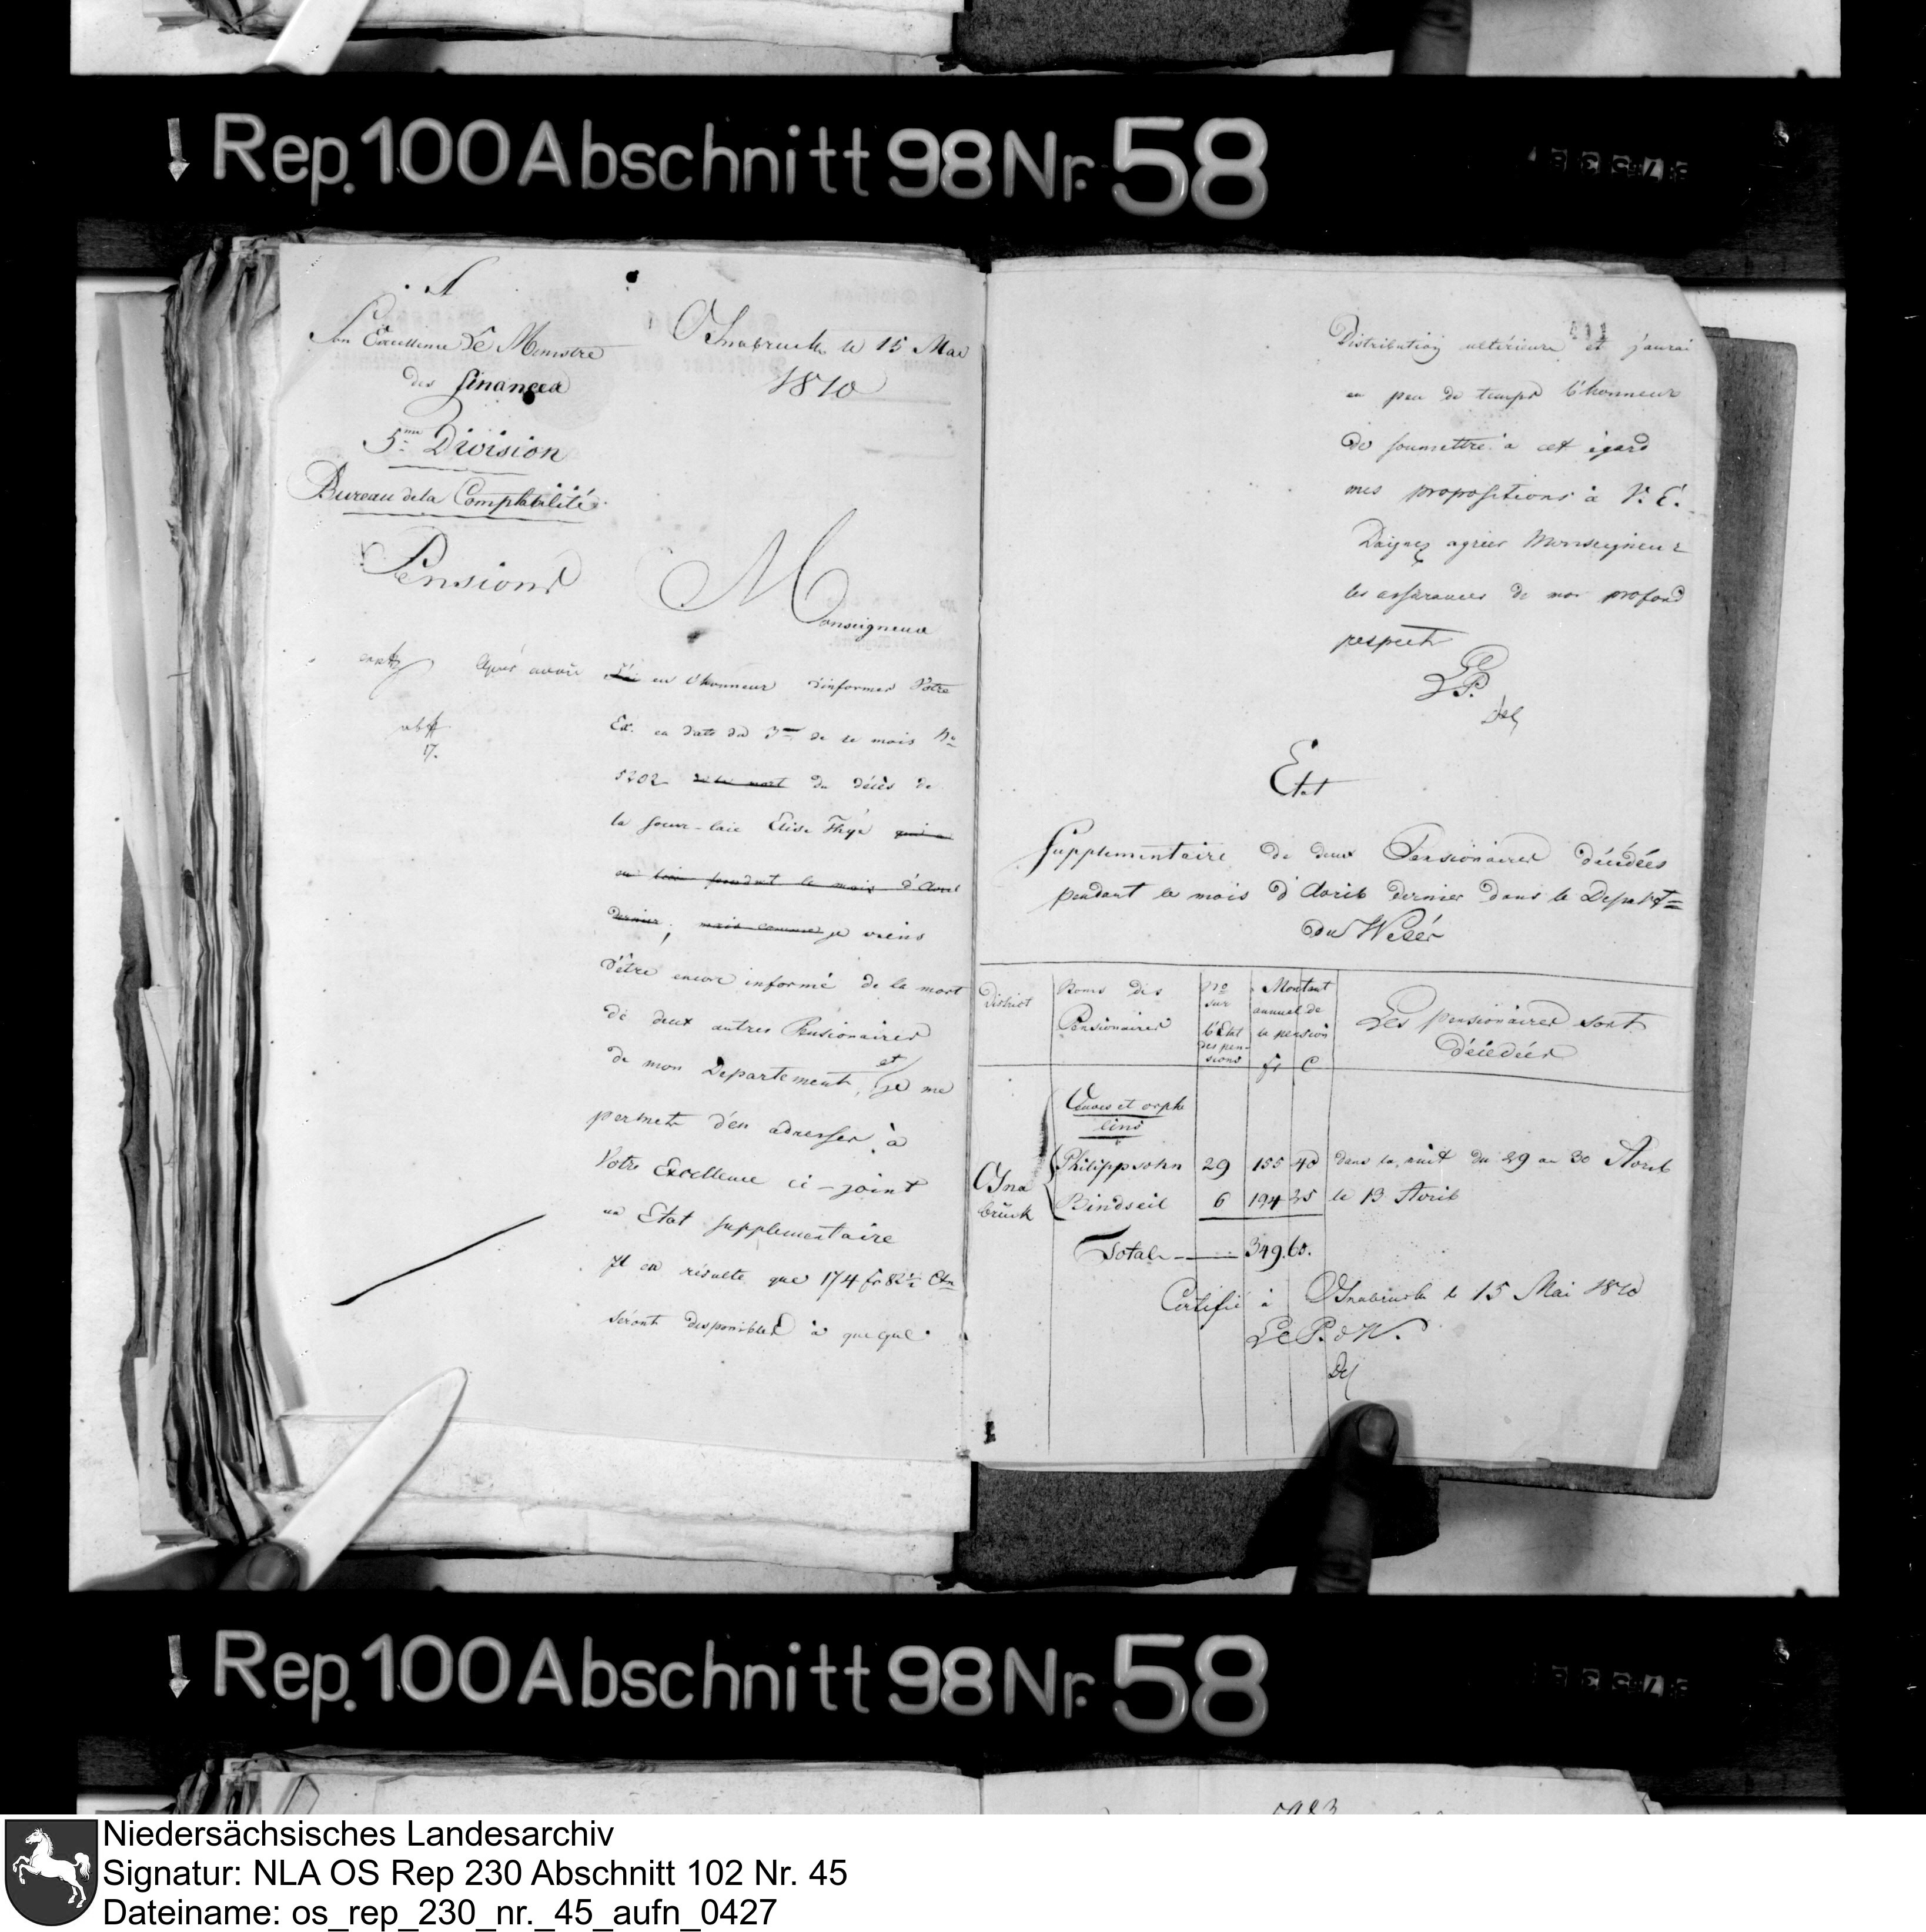 Rep. 100 Abschnitt 98 Nr. 58
A
Son Excellence Le Ministre
des finances
5me Division
Bureau de la Comptabilité
Pensions
Osnabruck le 15 Mai
1810
Monseigneur
Après avoir
17.
J'ai eu l'honneur d'informer Votre
Ex. en date du 3me de ce mois No
5202 de la mort du décès de
la soeur-laie Elise Thye qui a
eu lieu pendant le mois d'Avril
dernier; mais comme je viens
d'être encore informé de la mort
de deux autres Pensionaires
de mon Departement, et je me
permets d'en adresser à
Votre Excellence ci-joint
un Etat supplementaire
Il en résulte que 174 fr 82½ Ctm
séront disponibles à quequé
411
Distribution ultérieure et j'aurai
en peu de temps l'honneur
de soumettre à cet égard
mes propositions à V. E.
Daignez agréer Monseigneur
les assurances de mon profond
respect
L P.
Del
Etat
Supplementaire de deux Pensionaires décédées
pendant le mois d'Avril dernier dans le Departt
du Wesér
District
Noms des
Pensionaires
No
sur
l'Etat
des pen-
sions
Montant
annuel de
la pension
fr C
Les pensionaires sont
décédées
Veuves et orphe
lins
Osna
brück
Philippsohn 29 155 40 dans la nuit du 29 au 30 Avril
Bindseil 6 194 25 le 13 Avril
Total 349.65.
Certifié à Osnabruck le 15 Mai 1810
Le P. d W.
Del
Rep. 100 Abschnitt 98 Nr. 58
Niedersächsisches Landesarchiv
Signatur: NLA OS Rep 230 Abschnitt 102 Nr. 45
Dateiname: os_rep_230_nr._45_aufn_0427